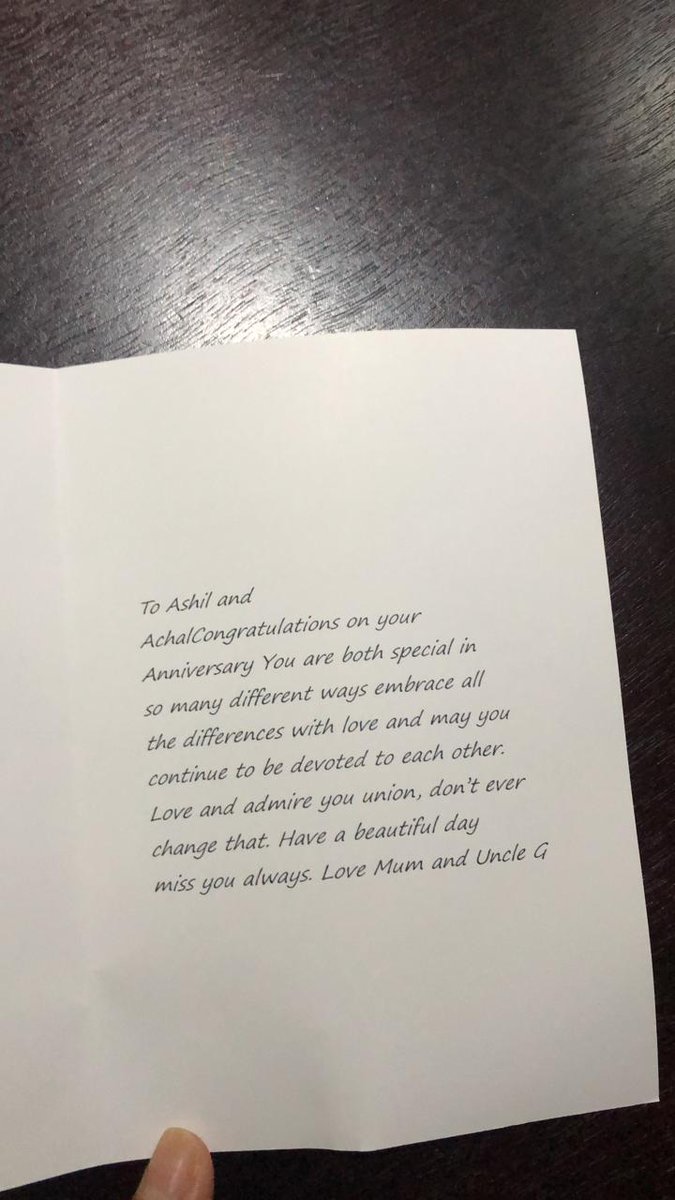 To Ashil and
AchalCongratulations on your
Anniversary You are both special in
so many different ways embrace all
the differences with love and may you
continue to be devoted to each other.
Love and admire you union, don't ever
change that. Have a beautiful day
miss you always. Love Mum and Uncle G